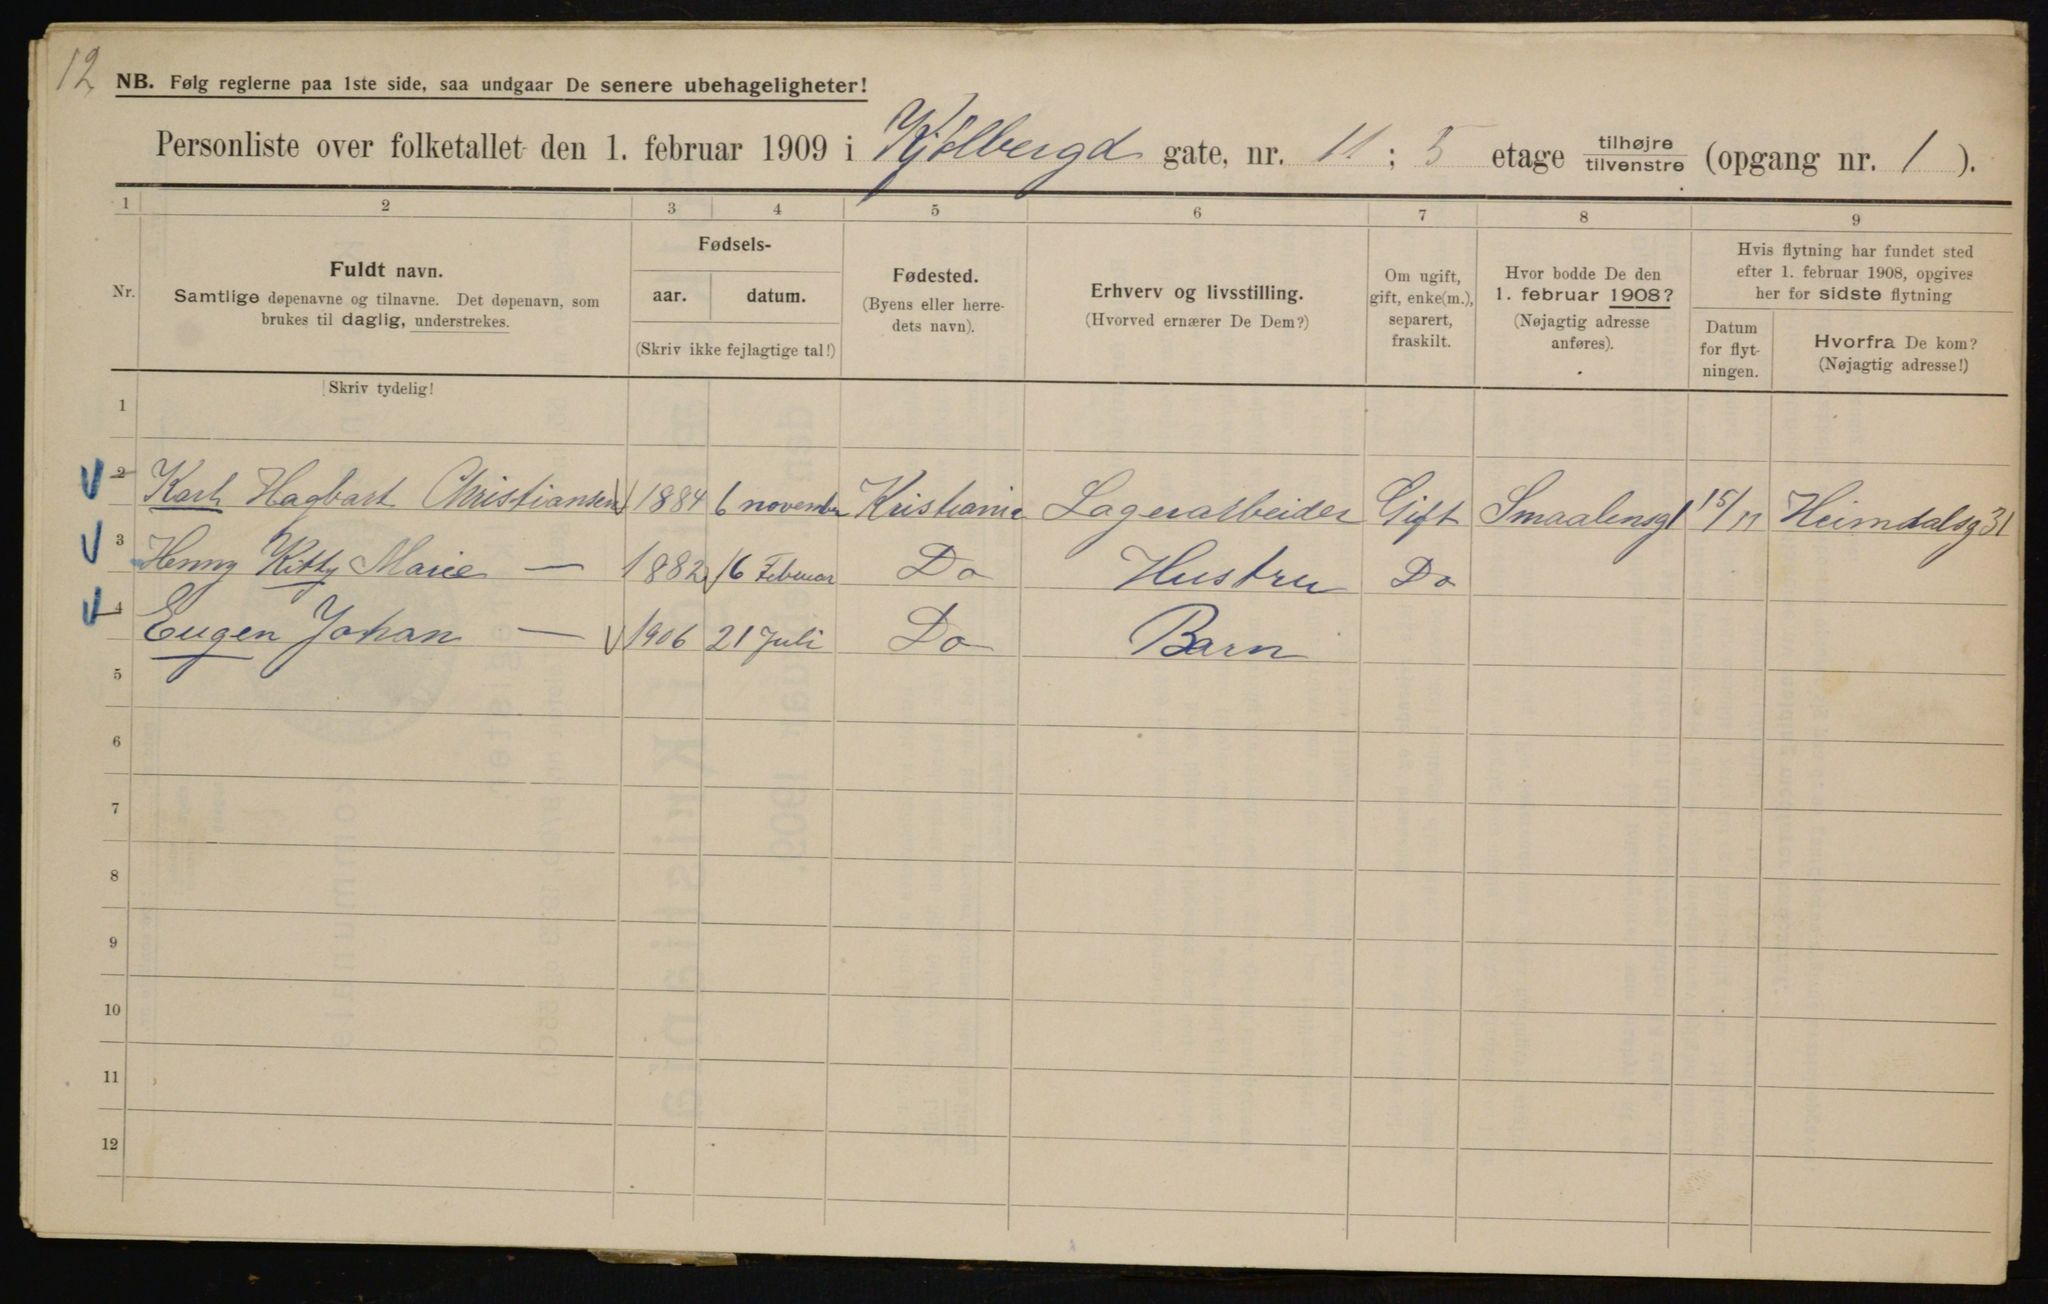 12
NB. Følg reglerne paa 1ste side, saa undgaar De senere ubehageligheter!
Personliste over folketallet den 1. februar 1909 i Kjølbergd gate, nr. 11; 5 etage tilhøjre tilvenstre (opgang nr. 1).
1 2 3 4 5 6 7 8 9
Nr.
Fuldt navn.
Samtlige døpenavne og tilnavne. Det døpenavn, som
brukes til daglig, understrekes.
Fødsels-
aar. datum.
(Skriv ikke fejlagtige tal!)
Fødested.
(Byens eller herre-
dets navn).
Erhverv og livsstilling.
(Hvorved ernærer De Dem?)
Om ugift,
gift, enke(m.),
separert,
fraskilt.
Hvor bodde De den
1. februar 1908?
(Nøjagtig adresse
anføres).
Hvis flytning har fundet sted
efter 1. februar 1908, opgives
her for sidste flytning
Datum
for flyt-
ningen.
Hvorfra De kom?
(Nøjagtig adresse!)
Skriv tydelig!
1
2 Karl Hagbart Christiansen 1884 6 november Kristiania Lagerarbeider Gift Smaalensg1 15/11 Heimdalsg 31
3 Henny Kitty Marie — 1882 16 Februar Do Hustru Do
4 Eugen Johan — 1906 21 Juli Do Barn
5
6
7
8
9
10
11
12